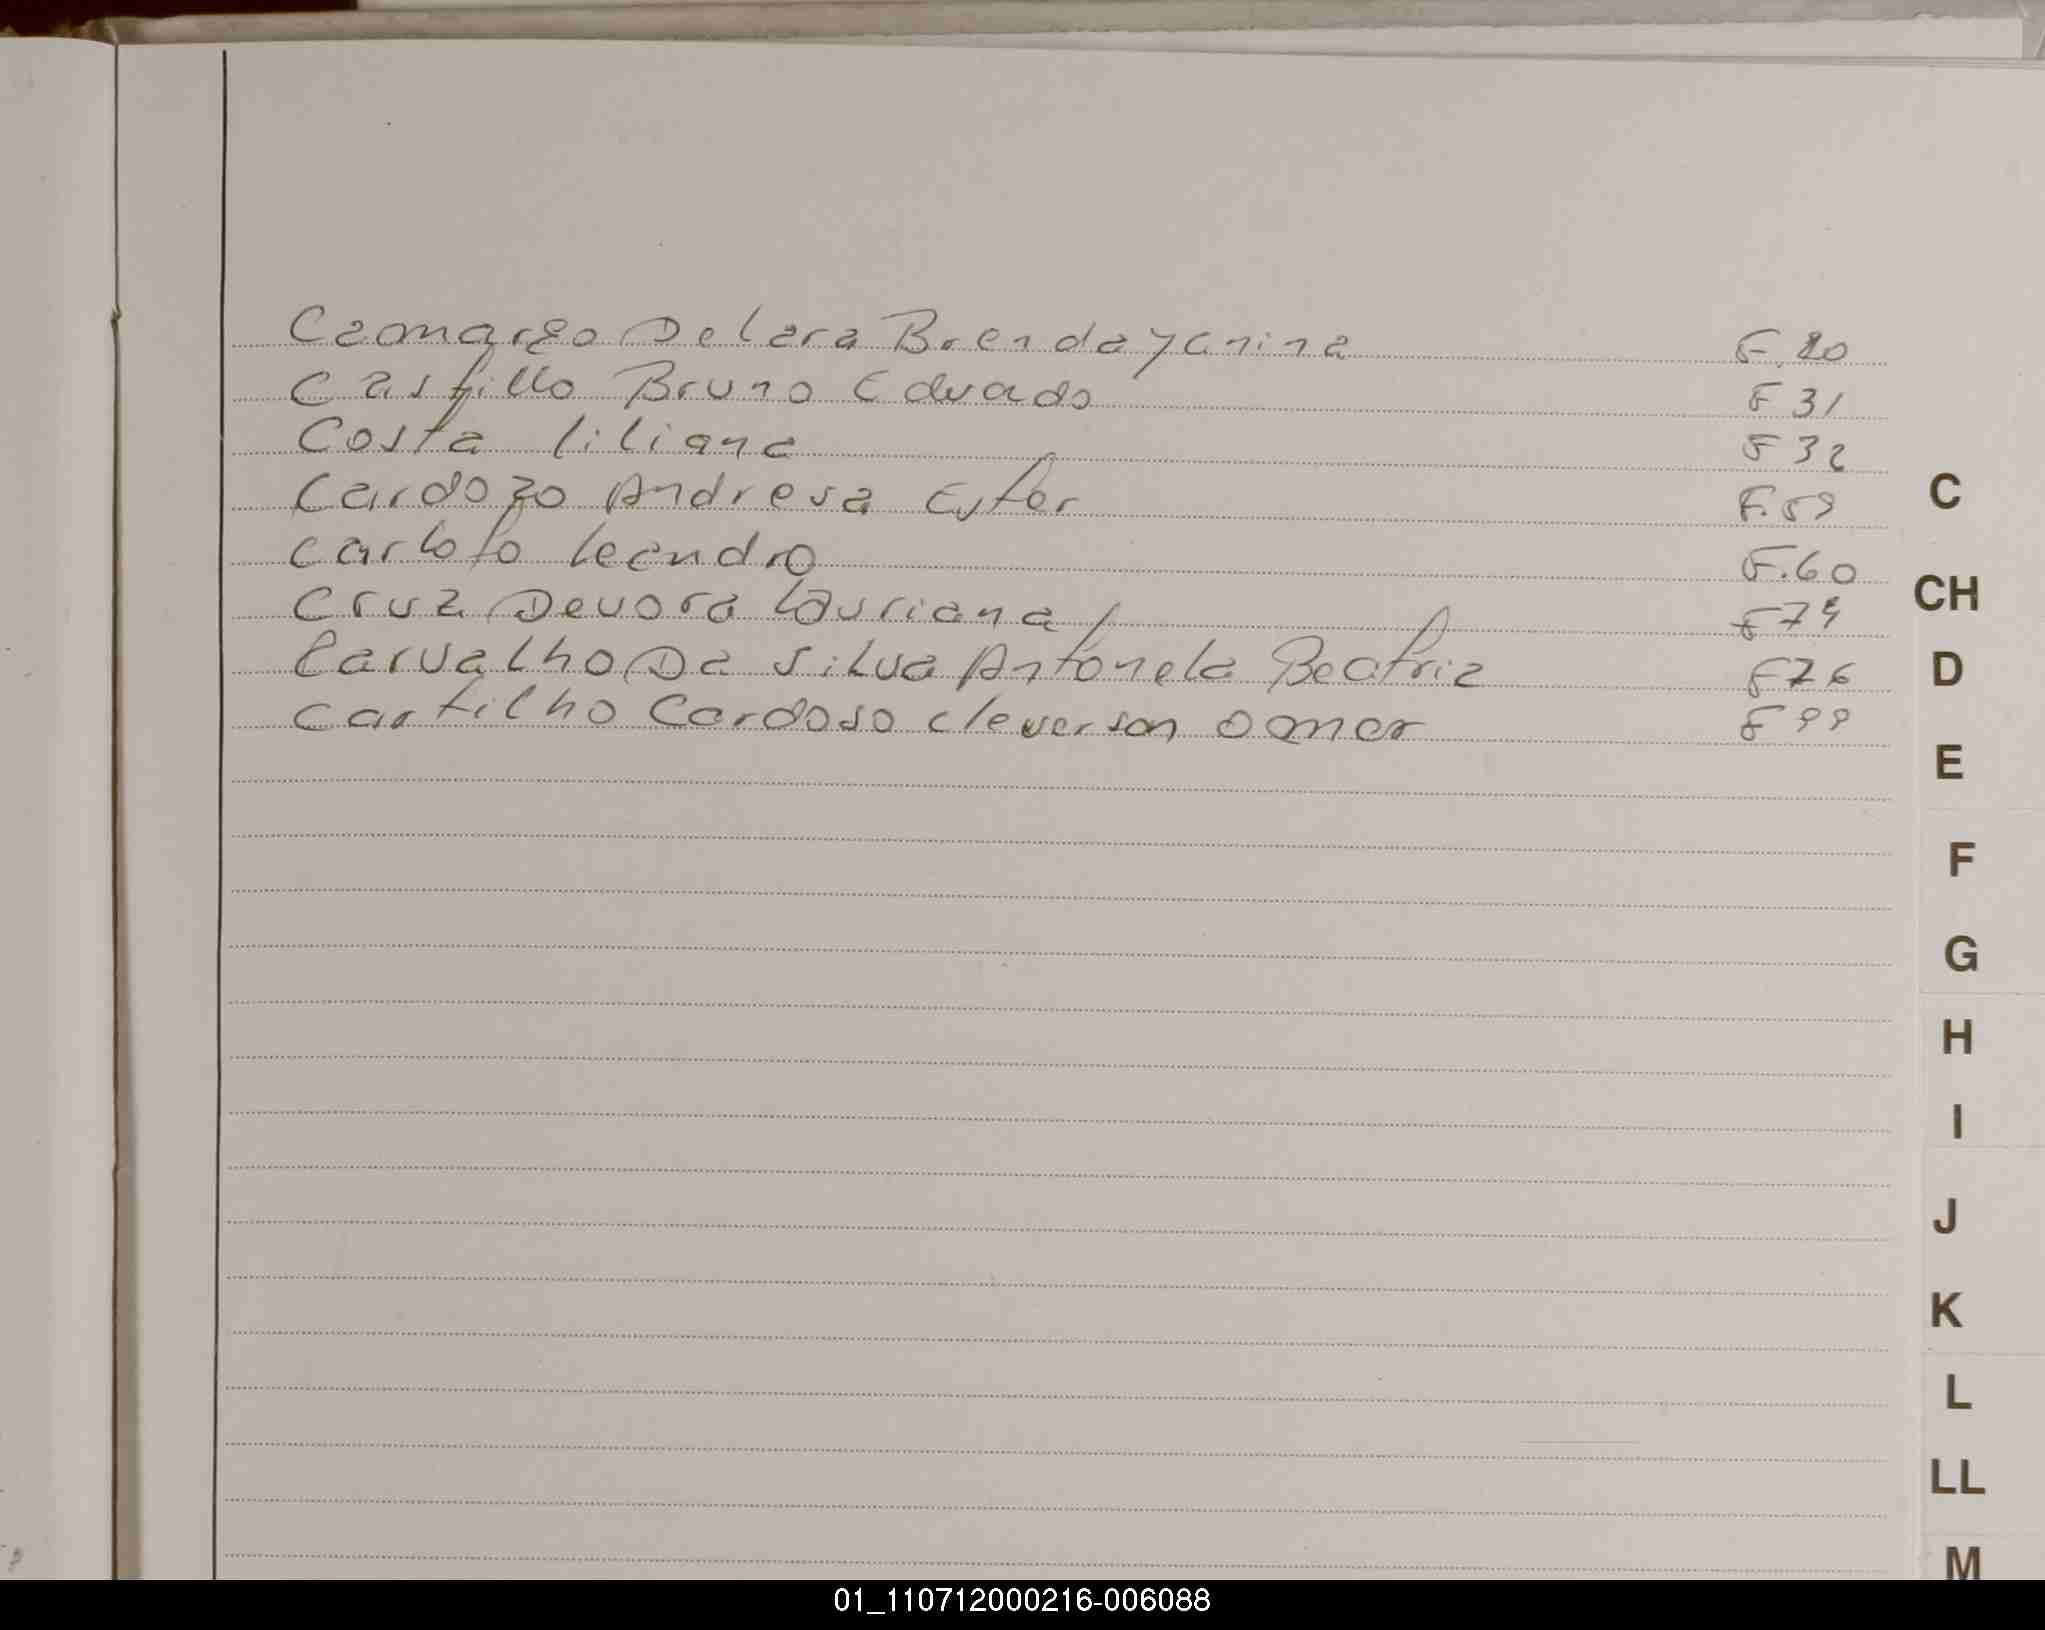 Camargo De lara Brenda Yanina F. 20
Castillo Bruno Eduado F 31
Costa liliana F 32
Cardozo Andresa Ester F. 59
Carloto leandro F. 60
Cruz Devora lauriana F 74
Carvalho Da Silva Antonela Beatriz F 76
Cartilho Cardoso cleverson omar F 99
C
CH
D
E
F
G
H
I
J
K
L
LL
M
01_110712000216-006088